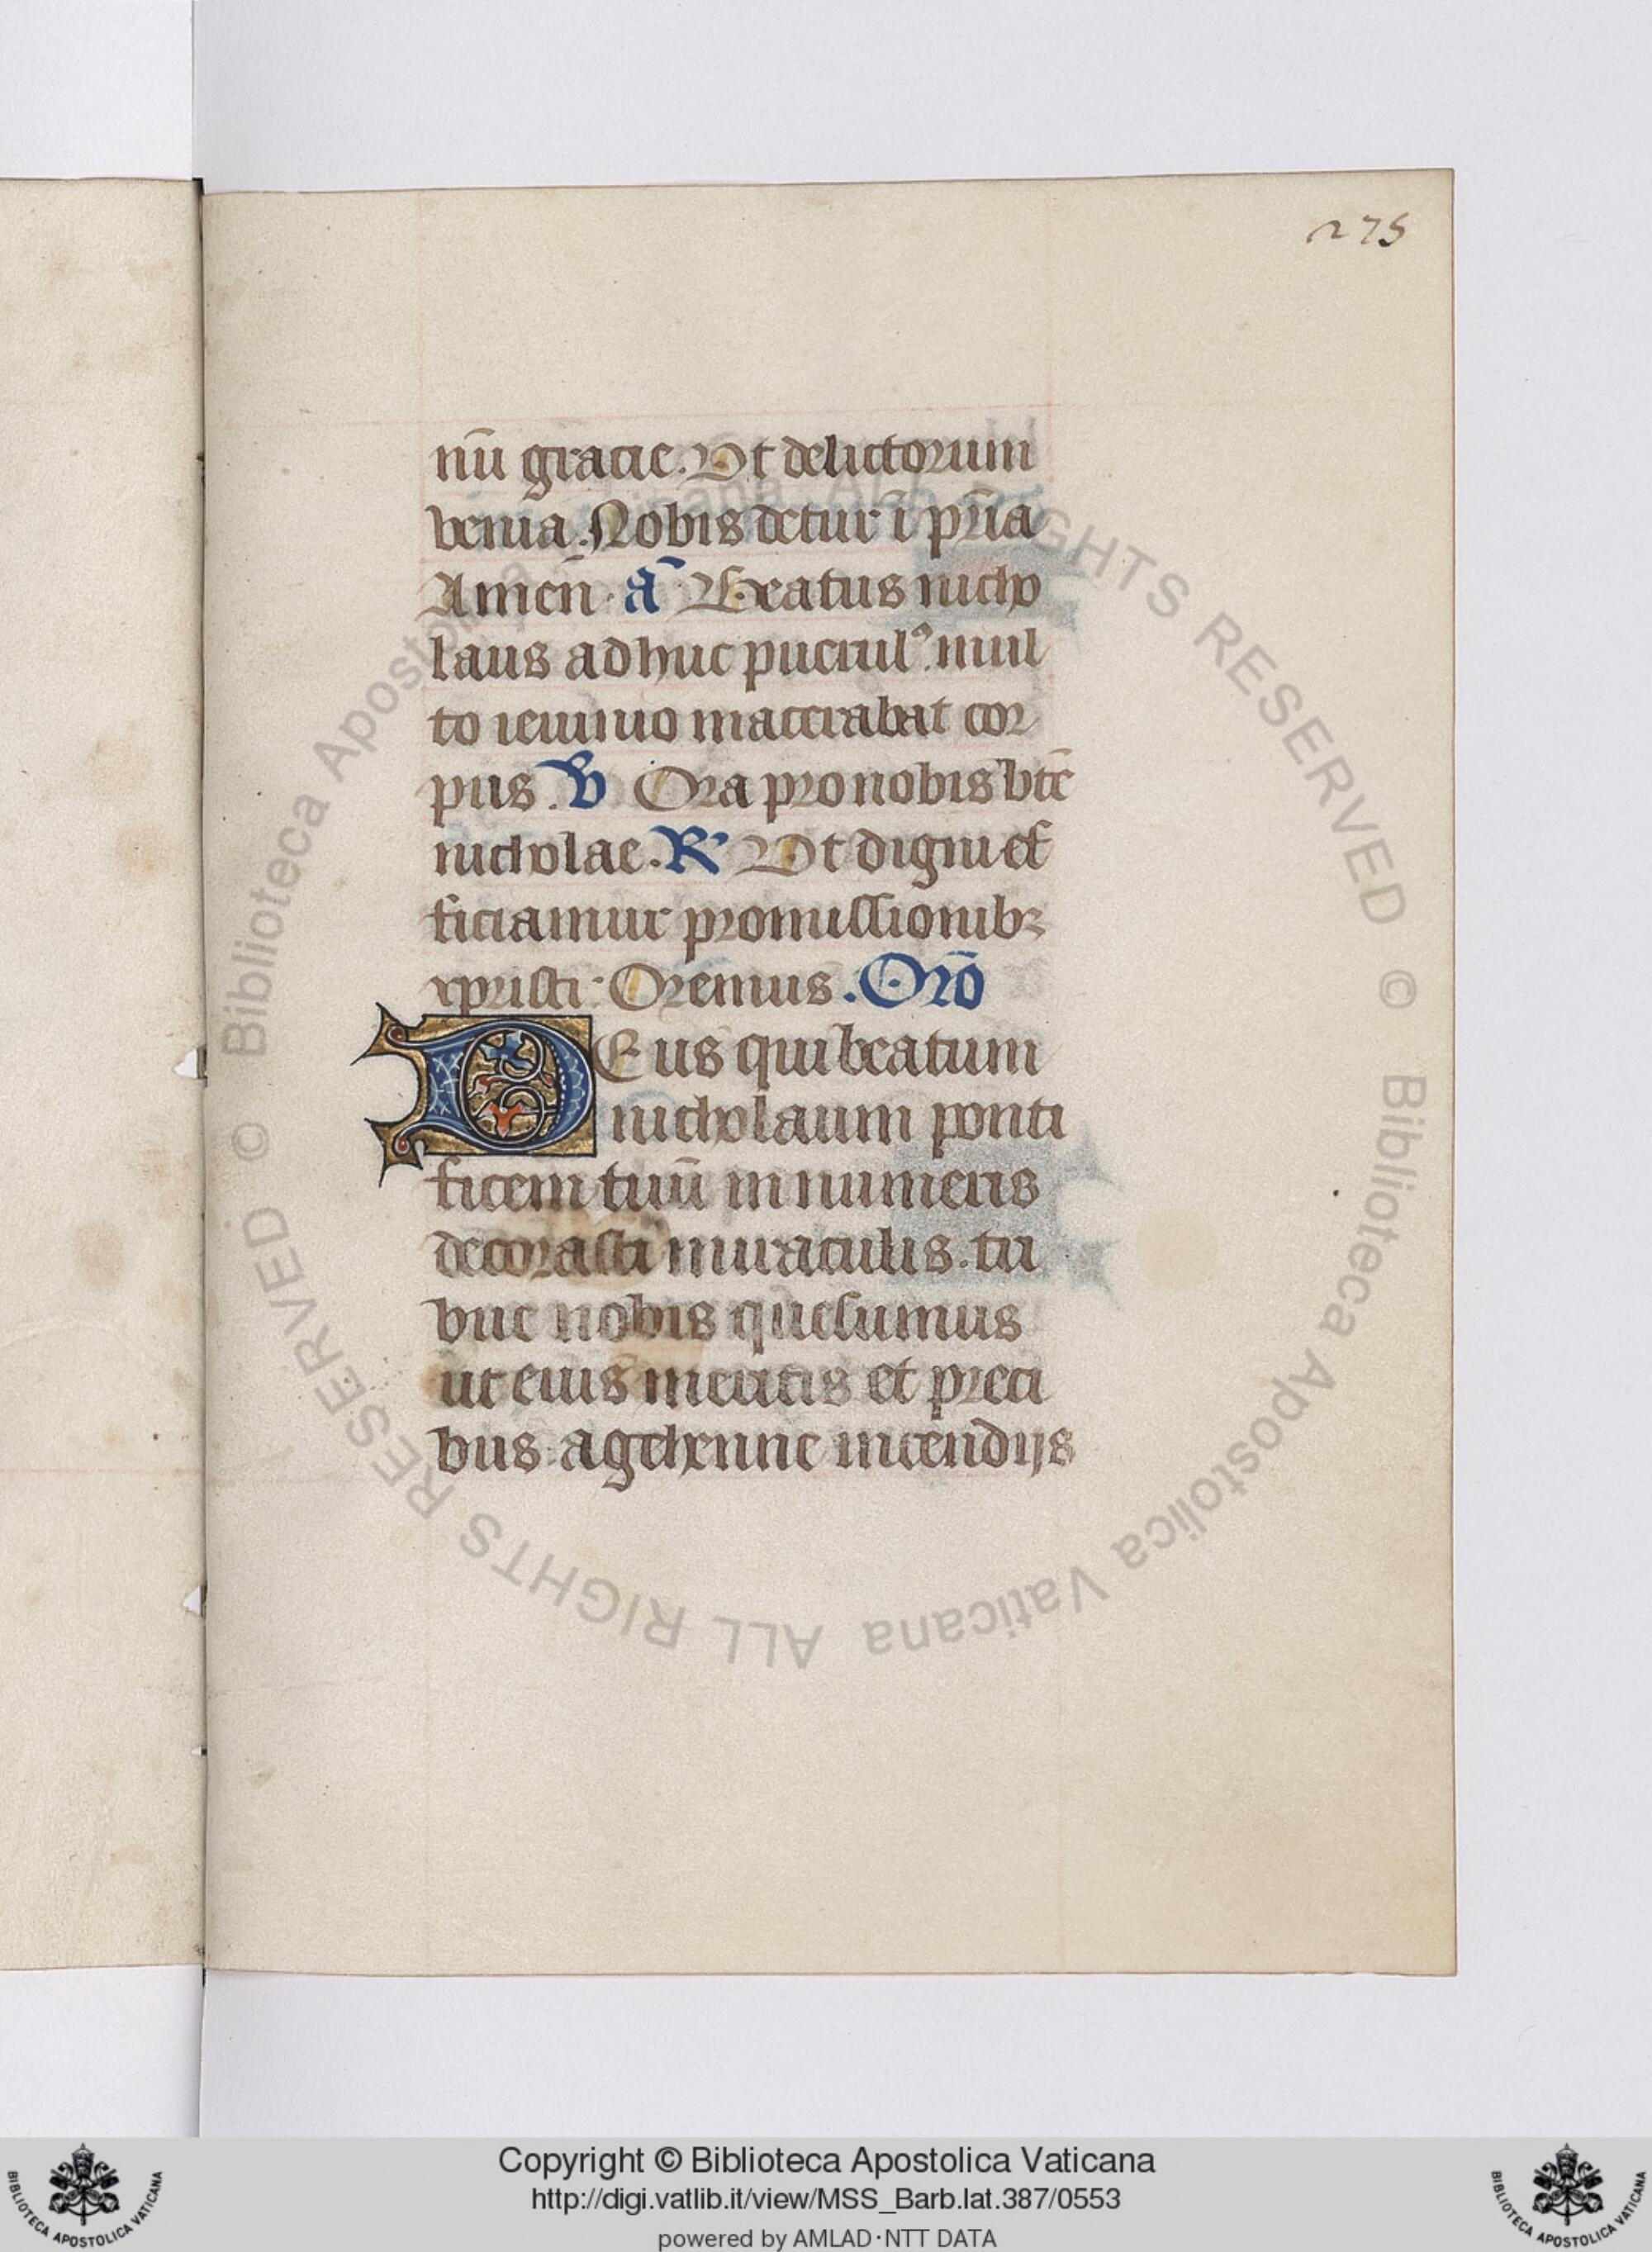 275
nū gracie. Vt delictorum
venia. Nobis detur ī pr̄ia
Amen̄. ā Beatus nicho
laus adhuc puerulꝰ. mul
to ieiunio macerabat cor
pus. V Ora pro nobis bt̄e
nicholae. R' Vt digni ef
ficiamur promissionibꝫ
xp̄risti: Oremus. Orō
DEus qui beatum
nicholaum ponti
ficem tuū innumeris
decorasti miraculis. tri
bue nobis quesumus
ut eius meritis et preci
bus. a gehenne incendijs
© Biblioteca Apostolica Vaticana ALL RIGHTS RESERVED © Biblioteca Apostolica Vaticana ALL RIGHTS RESERVED
Copyright © Biblioteca Apostolica Vaticana
http://digi.vatlib.it/view/MSS_Barb.lat.387/0553
powered by AMLAD·NTT DATA
BIBLIOTECA APOSTOLICA VATICANA
BIBLIOTECA APOSTOLICA VATICANA